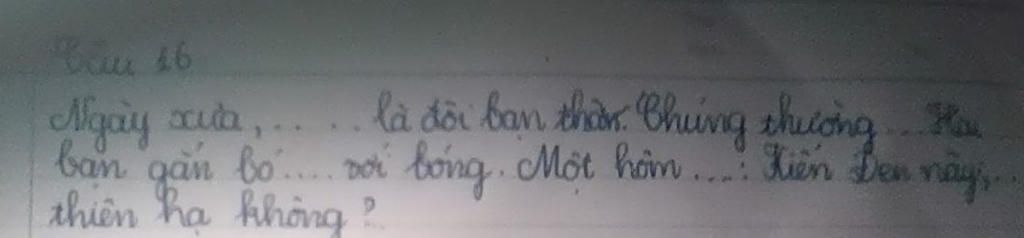 Câu 16
Ngày xưa, ..... là đôi bạn thân. Chúng thường ... Hai
bạn gắn bó .... với bóng. Một hôm ....: Kiến Đen này, ...
thiên hạ không?